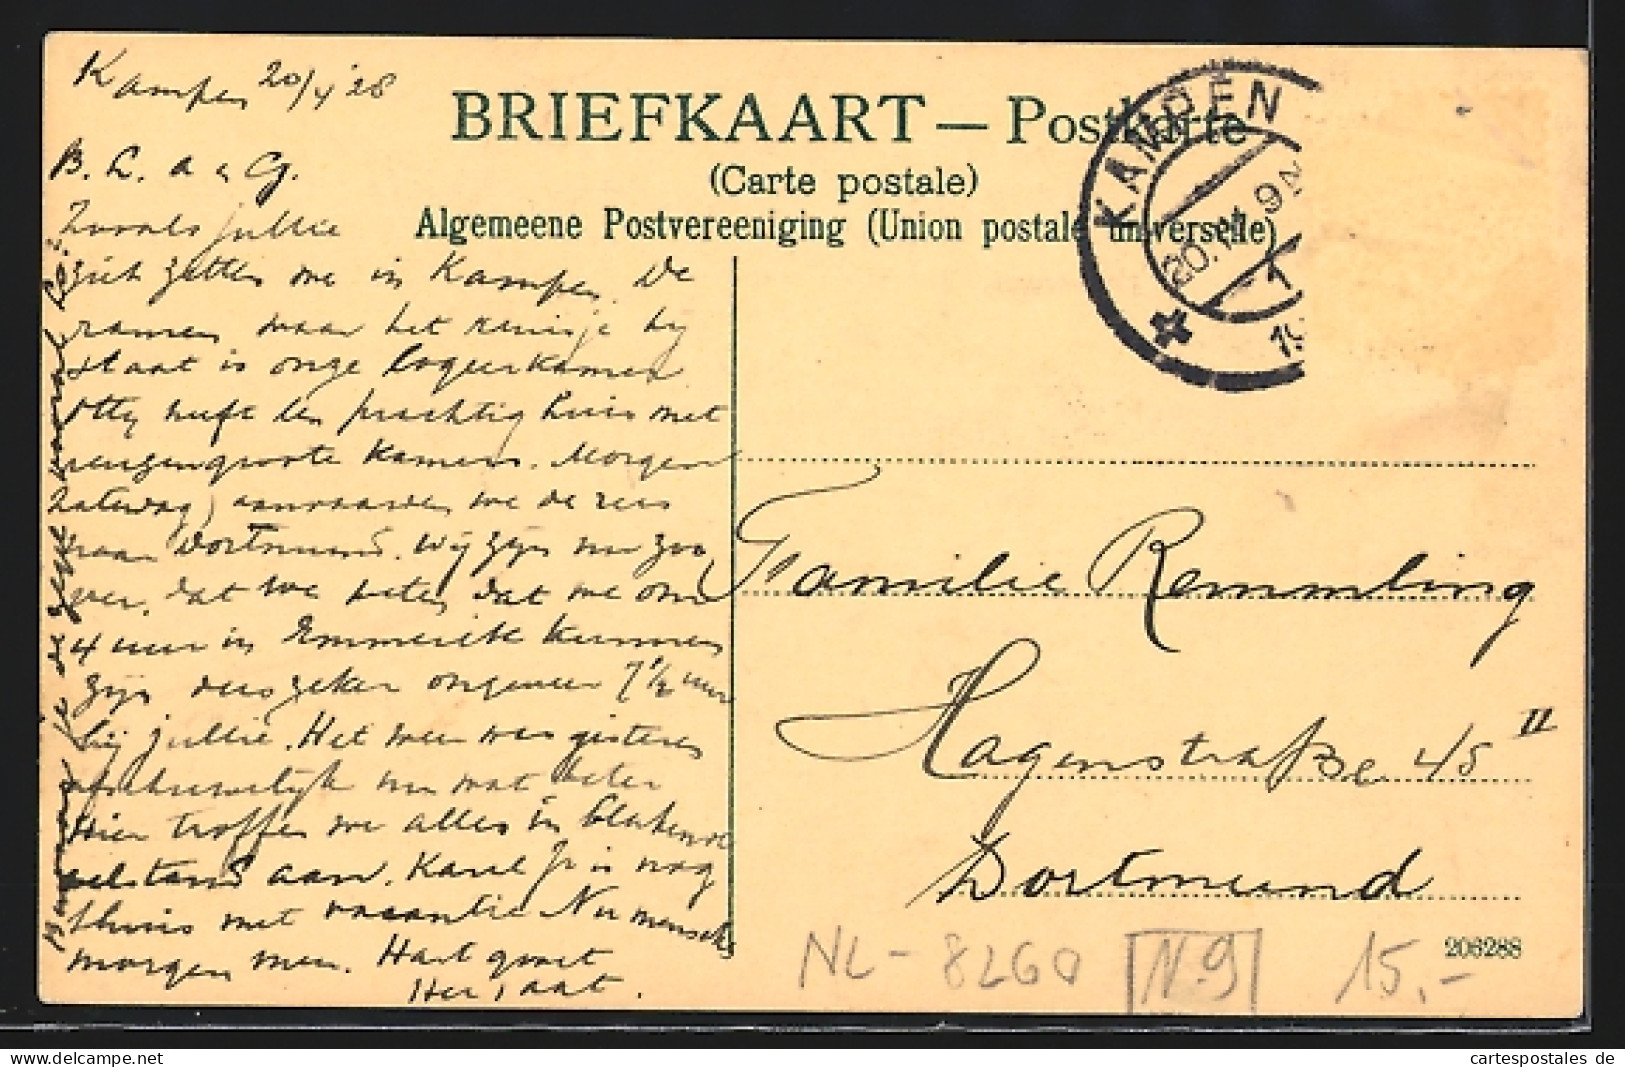 Kampen 20/4 '28
B. L. A en G.
Zooals jullie
zich zitten we in Kampen. De
ramen waar het kruisje bij
staat is onze logeerkamer
Otty heeft een prachtig huis met
reuzengroote kamers. Morgen
Zaterdag) aanvaarden we de reis
naar Dortmund. Wij zijn nu zoo
ver, dat we weten dat we om
4 uur in Emmerik kunnen
zijn dus zeker ongeveer 7 1/2 uur
bij jullie. Het weer was gisteren
afschuwelijk nu wat beter
Hier troffen we alles in blakende
welstand aan. Karel Jr is nog
thuis met vacantie Nu menschen
morgen meer. Hart. groet
BRIEFKAART — Postkarte
(Carte postale)
Algemeene Postvereeniging (Union postale universelle)
KAMPEN
Familie Remmling
Hagenstraße 45 II
Dortmund
NL - 8260 N.9 15,-
206288
cartespostales de